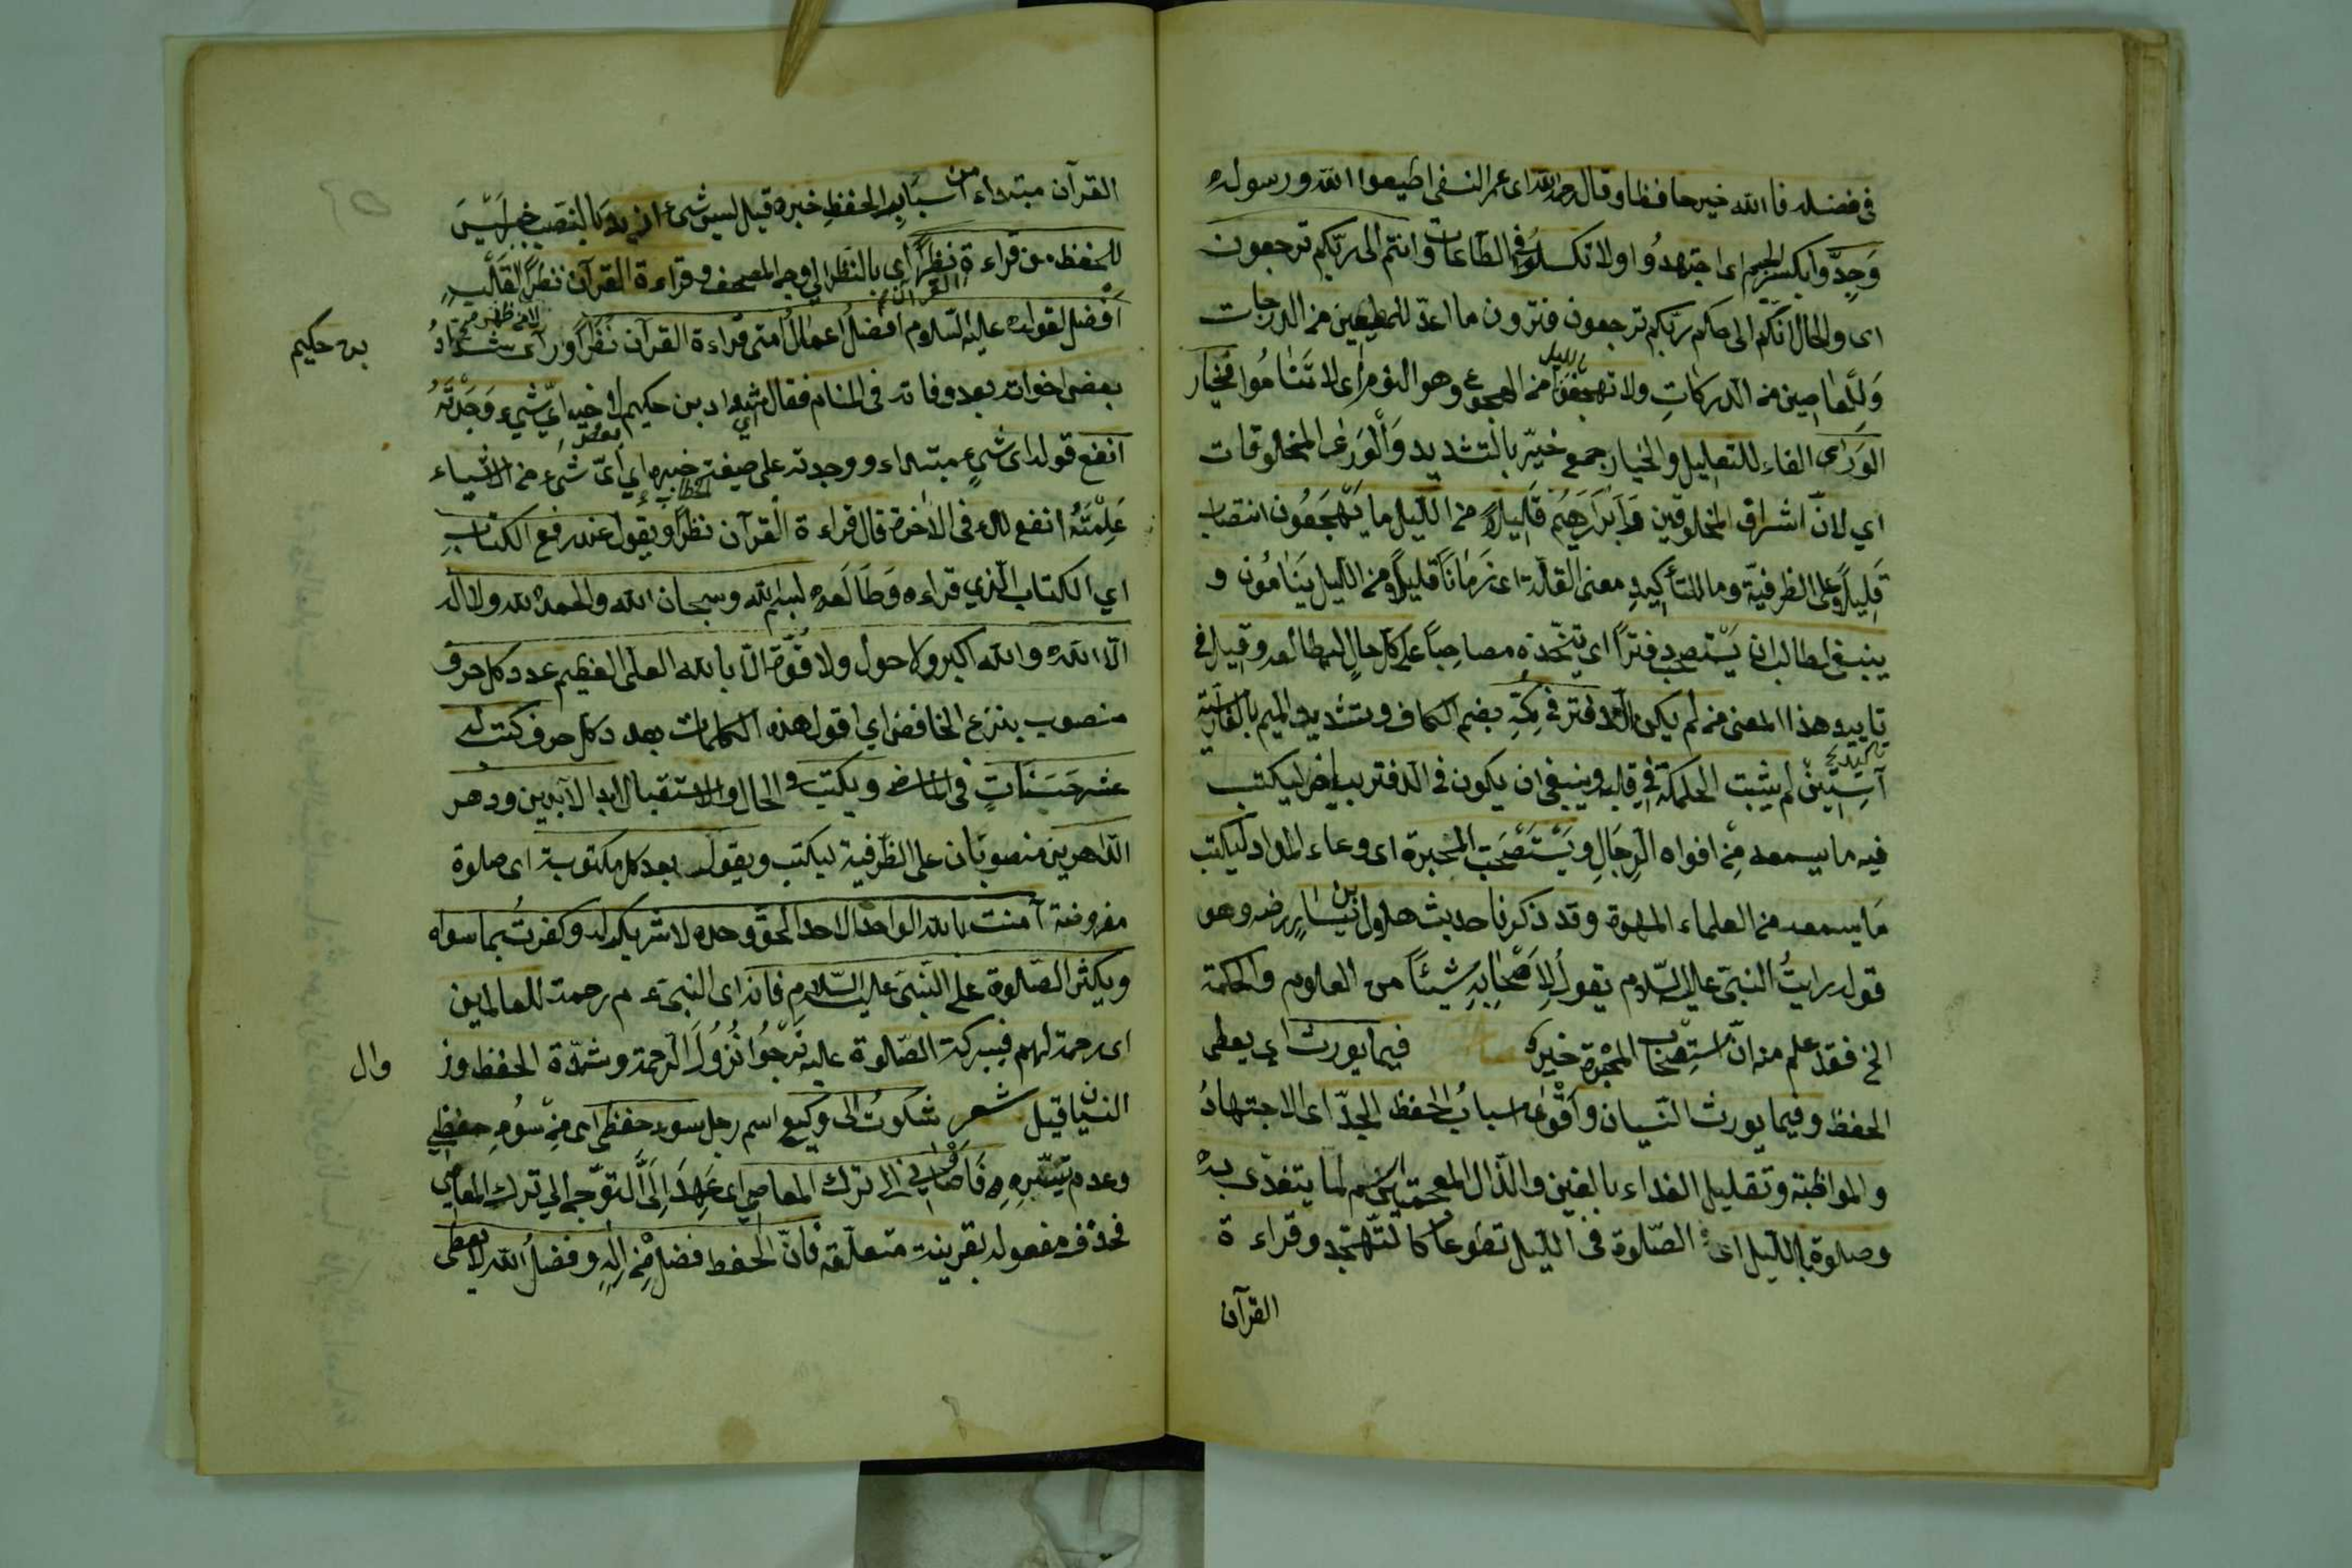 فى فضله فالله خير حافظا وقال رحمه الله اى عمر النسفى اطيعوا الله ورسوله
وَجِدّوا بكسر الجيم اى اجتهدُوا ولا تكسلوا فى الطاعات وانتم الى ربّكم ترجعون
اى والحال انّكم الى حكم ربّكم ترجعون فترون ما اعدّ للمطيعين من الدرجات
وَلِلعاصين من الدركاتِ ولا تهجعوا من الهجوع وهو النوم بالليل اى لا تَنَامُوا فخيار
الوَرَى الفاء للتعليل والخيار جمع خيّر بالتشديد وَالْوَرَى المخلوقات
اي لانّ اشراف المخلوقين وَاَبْرَارَهم قَلِيلاً من الّليل ما يَهْجَعُون انتصاب
قَلِيلاً على الظرفيّة وما للتأكيدِ معنى القلّة اى زَمَانًا قليلاً من الليل يَنَامُون و
ينبغى لطالب ان يَسْتصحب دفترًا اى يتّخذه مصاحِبًا على كلّ حالٍ ليطالعه وقيل فى
تاييد هذا المعنى من لم يكن الدفتر فى كُمّه بضم الكاف وتشديد الميم بالفارسيّة
آستين لم يثبت الحكمة فى قلبه وينبغى ان يكون فى الدفتر بياض ليكتب
فيه ما يسمعه مِن افواه الرِجَالِ ويَسْتَصْحَبَ المحبرة اى وعاء المداد ليكتب
مَا يسمعه من العلماء المهرة وقد ذكرنا حديث هلال بن يسارٍ رضه وهو
قوله رايتُ النبىّ عليه السّلام يقولُ لِاَصْحَابِهِ شيئًا من العلوم والحكمة
الخ فقد علم منه انّ استِصْحَابَ المحبرة خيره فيما يورث اي يعطى
الحفظ وفيما يورث النّسيان وَاَقْوَى اسبابُ الحفظ الجدّ اى الاجتهادُ
والمواظبة وتقليل الغداء بالغين والذّال المعجمتين اسم لما يتغذّى به
وصلوة بالّليل اى الصّلوة فى الّليل تطوعًا كالتّهجّد وقراءة
القرآن
القرآن مبتداء من اسبَابِ الحفظِ خبره قيل ليس شئ ازيد بالنصب خبر لَيْسَ
للحفظ من قراءة القرآن نَظرًا اى بالنظر الى وجه المصحف وقراءة القرآن نظرًا
أفْضل لقوله عليه السّلام افضلُ اعمال امتى قراءة القرآن نَظَرًا ورآى شدّادُ
بن حكيم
بعض اخوانه بعد وفاته فى المنام فقال شدّاد بن حكيم لاخيه ايّ شيء وَجَدْتَهُ
انفع قوله اى شيءٍ مبتداء ووجدته على صيغة الخطاب خبره اي اىّ شئ من الاشياء
عَلِمْتَهُ انفع لك فى الاخرة قال قراءة القرآن نظرًا ويقول عند رفع الكتابِ
اي الكتاب الّذي قراءه وَطَالَعه بسم الله وسبحان الله والحمد لله ولا اله
الّا الله والله اكبر ولا حول ولا قوّة الّا بالله العلى العظيم عدد كل حرف
منصوب بنزع الخافض اي اقول هذه الكلمات بعدد كل حرف كتب له
عشر حَسَنَاتٍ فى الماضى ويكتب فى الحال والاستقبال ابد الآبدين ودهر
الدّاهرين منصوبَان على الظرفية ليكتب ويقول بعد كل مكتوبة اى صلوة
مفروضة آمنت بالله الواحد الاحد الحقّ وحده لا شريك له وكفرتُ بما سواه
ويكثر الصّلوة على النّبىّ عليه السّلام فانه اى النبىّ ءم رحمة للعالمين
اى رحمة لهم فببركة الصّلوة عليه نَرْجُوا نُزُولَ الرحمة وشدّة الحفظ وز
وال
النسيان قيل شعر شكوتُ الى وكيع اسم رجل سوء حفظى اى من سُوءِ حفظي
وعدم تيسّره فَاَوْصَانى الى ترك المعاصى اى عَهِدَ اِلَىَّ التوجّه الي ترك المعاصى
فحذف مفعوله بقرينة متعلّقه فانّ الحفظ فضل من اِلٰهٍ وفضلُ الله لا يعطى